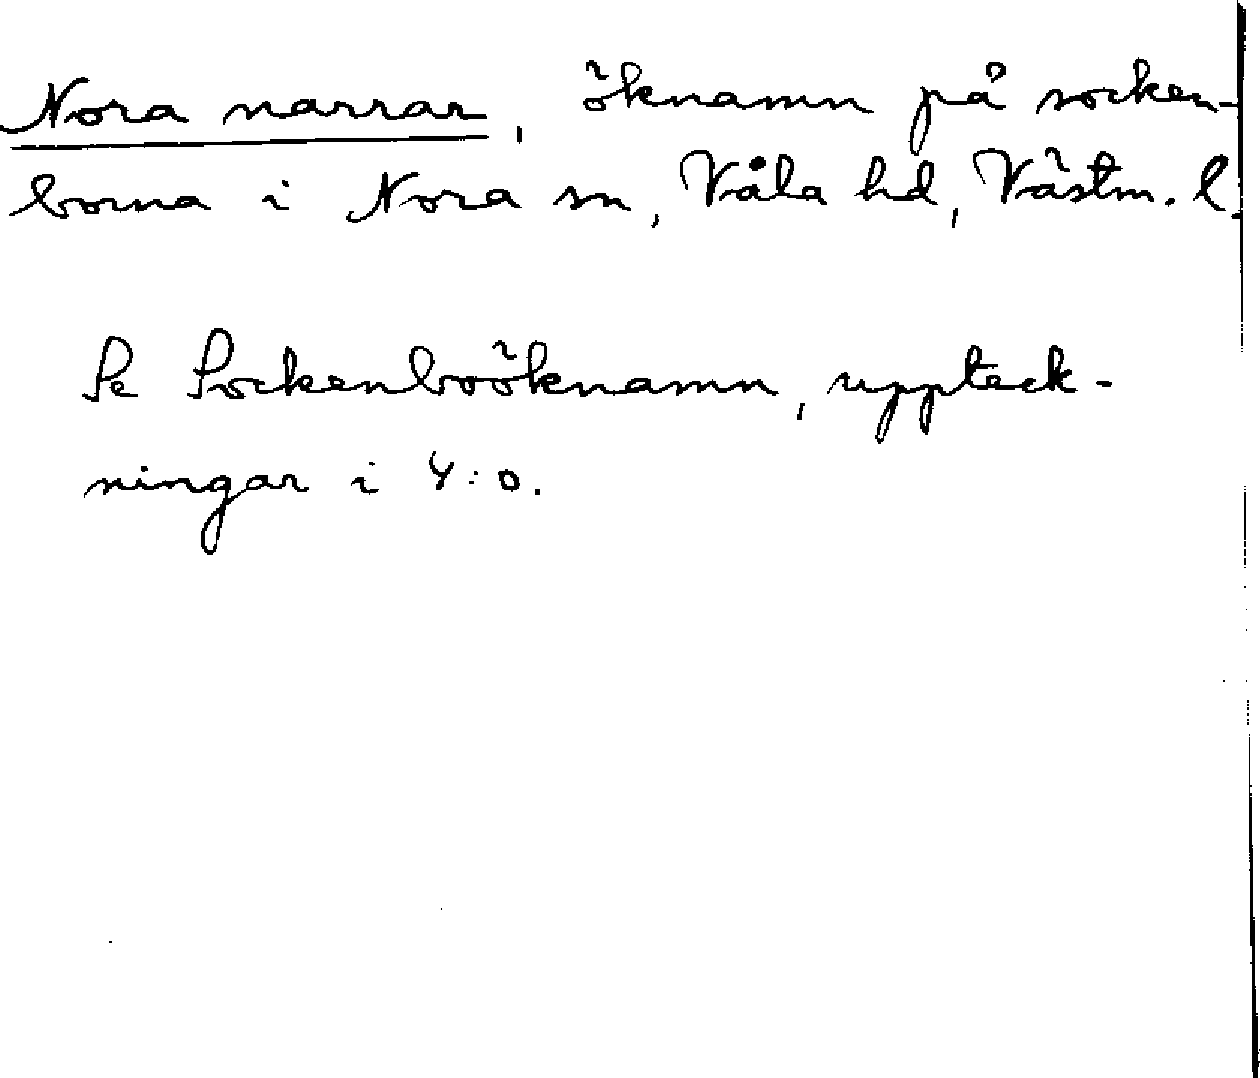 Nora narrar, öknamn på socken-
borna i Nora sn, Våla hd, Västm. l.
Se Sockenboöknamn, uppteck-
ningar i 4:o.